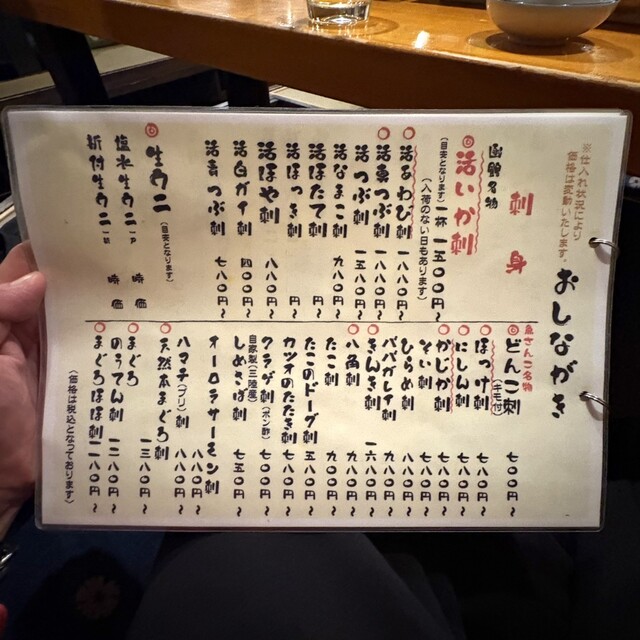 おしながき
※仕入れ状況により
価格は変動いたします。
刺身
函館名物
活いか刺
(目安となります)一杯 一五〇〇円〜
(入荷のない日もあります)
活あわび刺 一八八〇円〜
活真つぶ刺 一八八〇円〜
活つぶ刺 一五八〇円〜
活なまこ刺 九八〇円〜
活ほたて刺 円〜
活ほっき刺 円〜
活ほや刺 八八〇円〜
活白ガイ刺 四〇〇円〜
活青つぶ刺 七八〇円〜
生ウニ
(目安となります)
塩水生ウニ 一P 時価
折付生ウニ 時価
魚さんこ名物
どんこ刺 七〇〇円〜
(キモ付)
ほっけ刺 七八〇円〜
にしん刺 七八〇円〜
かじか刺 九八〇円〜
そい刺 九〇〇円〜
ひらめ刺 八八〇円〜
ババガレイ刺 九八〇円〜
きんき刺 一六八〇円〜
八角刺 九八〇円〜
たこ刺 九〇〇円〜
たこのドーグ刺 五八〇円〜
カツオのたたき刺 七八〇円〜
クラゲ刺(ポン酢) 七〇〇円〜
自家製(三陸産)
しめさば刺 七五〇円〜
オーロラサーモン刺 八八〇円〜
ハマチ(ブリ)刺 八八〇円〜
天然本まぐろ刺
まぐろ 一三八〇円〜
のうてん刺 一二八〇円〜
まぐろほほ刺 一一八〇円〜
(価格は税込となっております)